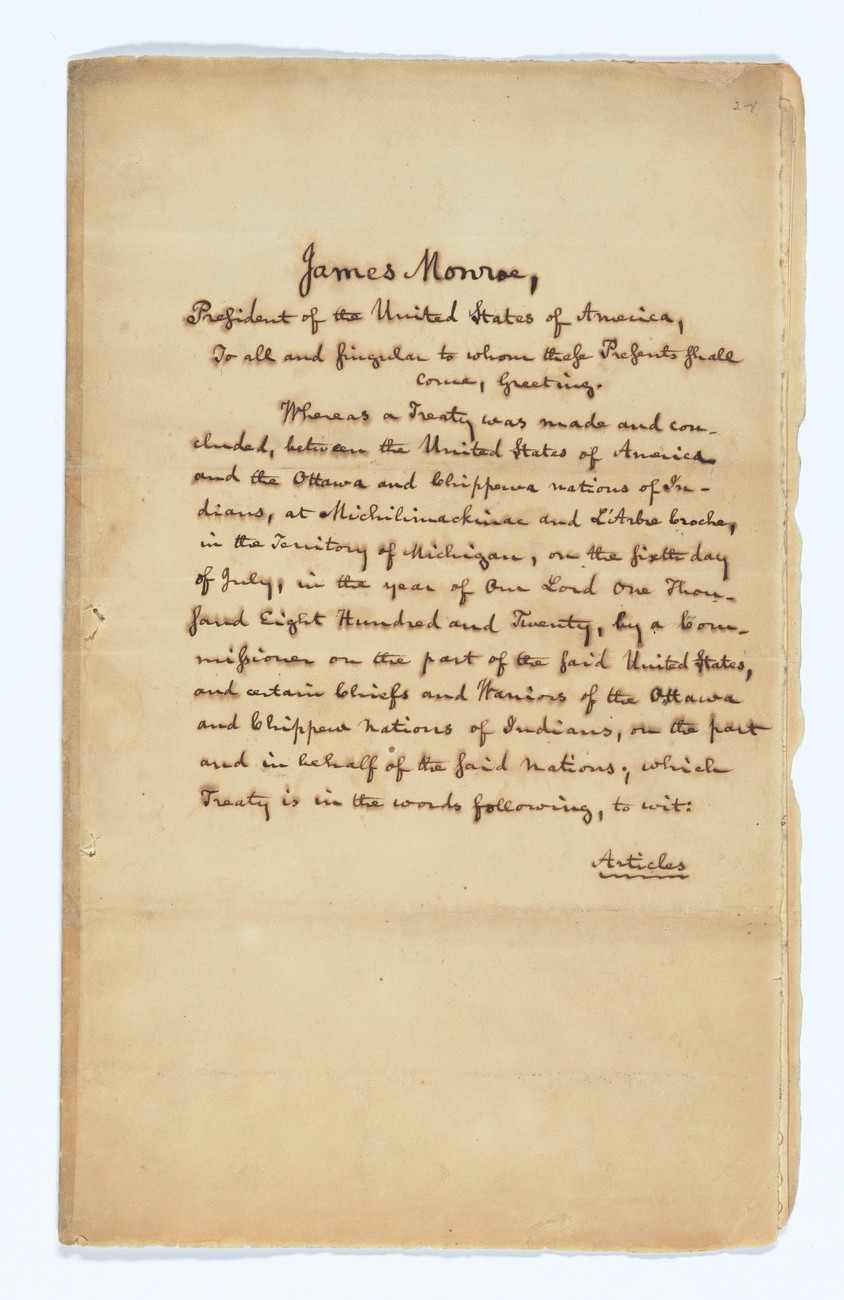 James Monroe,
President of the United States of America,
To all and singular to whom these Presents shall
come, Greeting.
Whereas a Treaty was made and con-
cluded, between the United States of America
and the Ottawa and Chippewa nations of In-
dians, at Michilimackinac and L'Arbre Croche,
in the Territory of Michigan, on the sixth day
of July, in the year of Our Lord One Thou-
sand Eight Hundred and Twenty, by a Com-
missioner on the part of the said United States,
and certain Chiefs and Warriors of the Ottawa
and Chippew nations of Indians, on the part
and in behalf of the said nations; which
Treaty is in the words following, to wit:
Articles